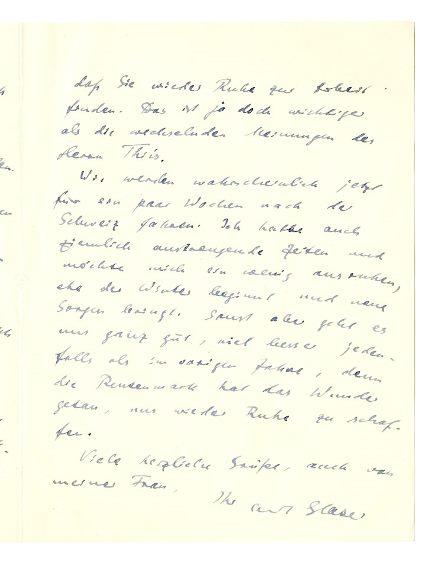 daß Sie wieder Ruhe zur Arbeit
finden. Das ist ja doch wichtiger
als die wechselnden Meinungen des
Herrn Thiis.
Wir werden wahrscheinlich jetzt
für ein paar Wochen nach der
Schweiz fahren. Ich hatte auch
ziemlich anstrengende Zeiten und
möchte mich ein wenig ausruhen,
ehe der Winter beginnt und neue
Sorgen bringt. Sonst aber geht es
uns ganz gut, viel besser jeden-
falls als im vorigen Jahre, denn
die Rentenmark hat das Wunder
getan, uns wieder Ruhe zu schaf-
fen.
Viele herzliche Grüße, auch von
meiner Frau,
Ihr Curt Glaser